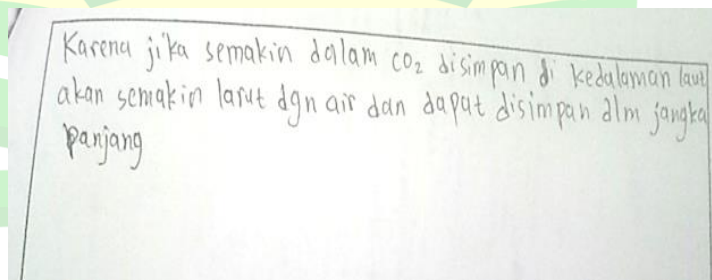 Karena jika semakin dalam CO2 disimpan di kedalaman laut
akan semakin larut dgn air dan dapat disimpan dlm jangka
panjang